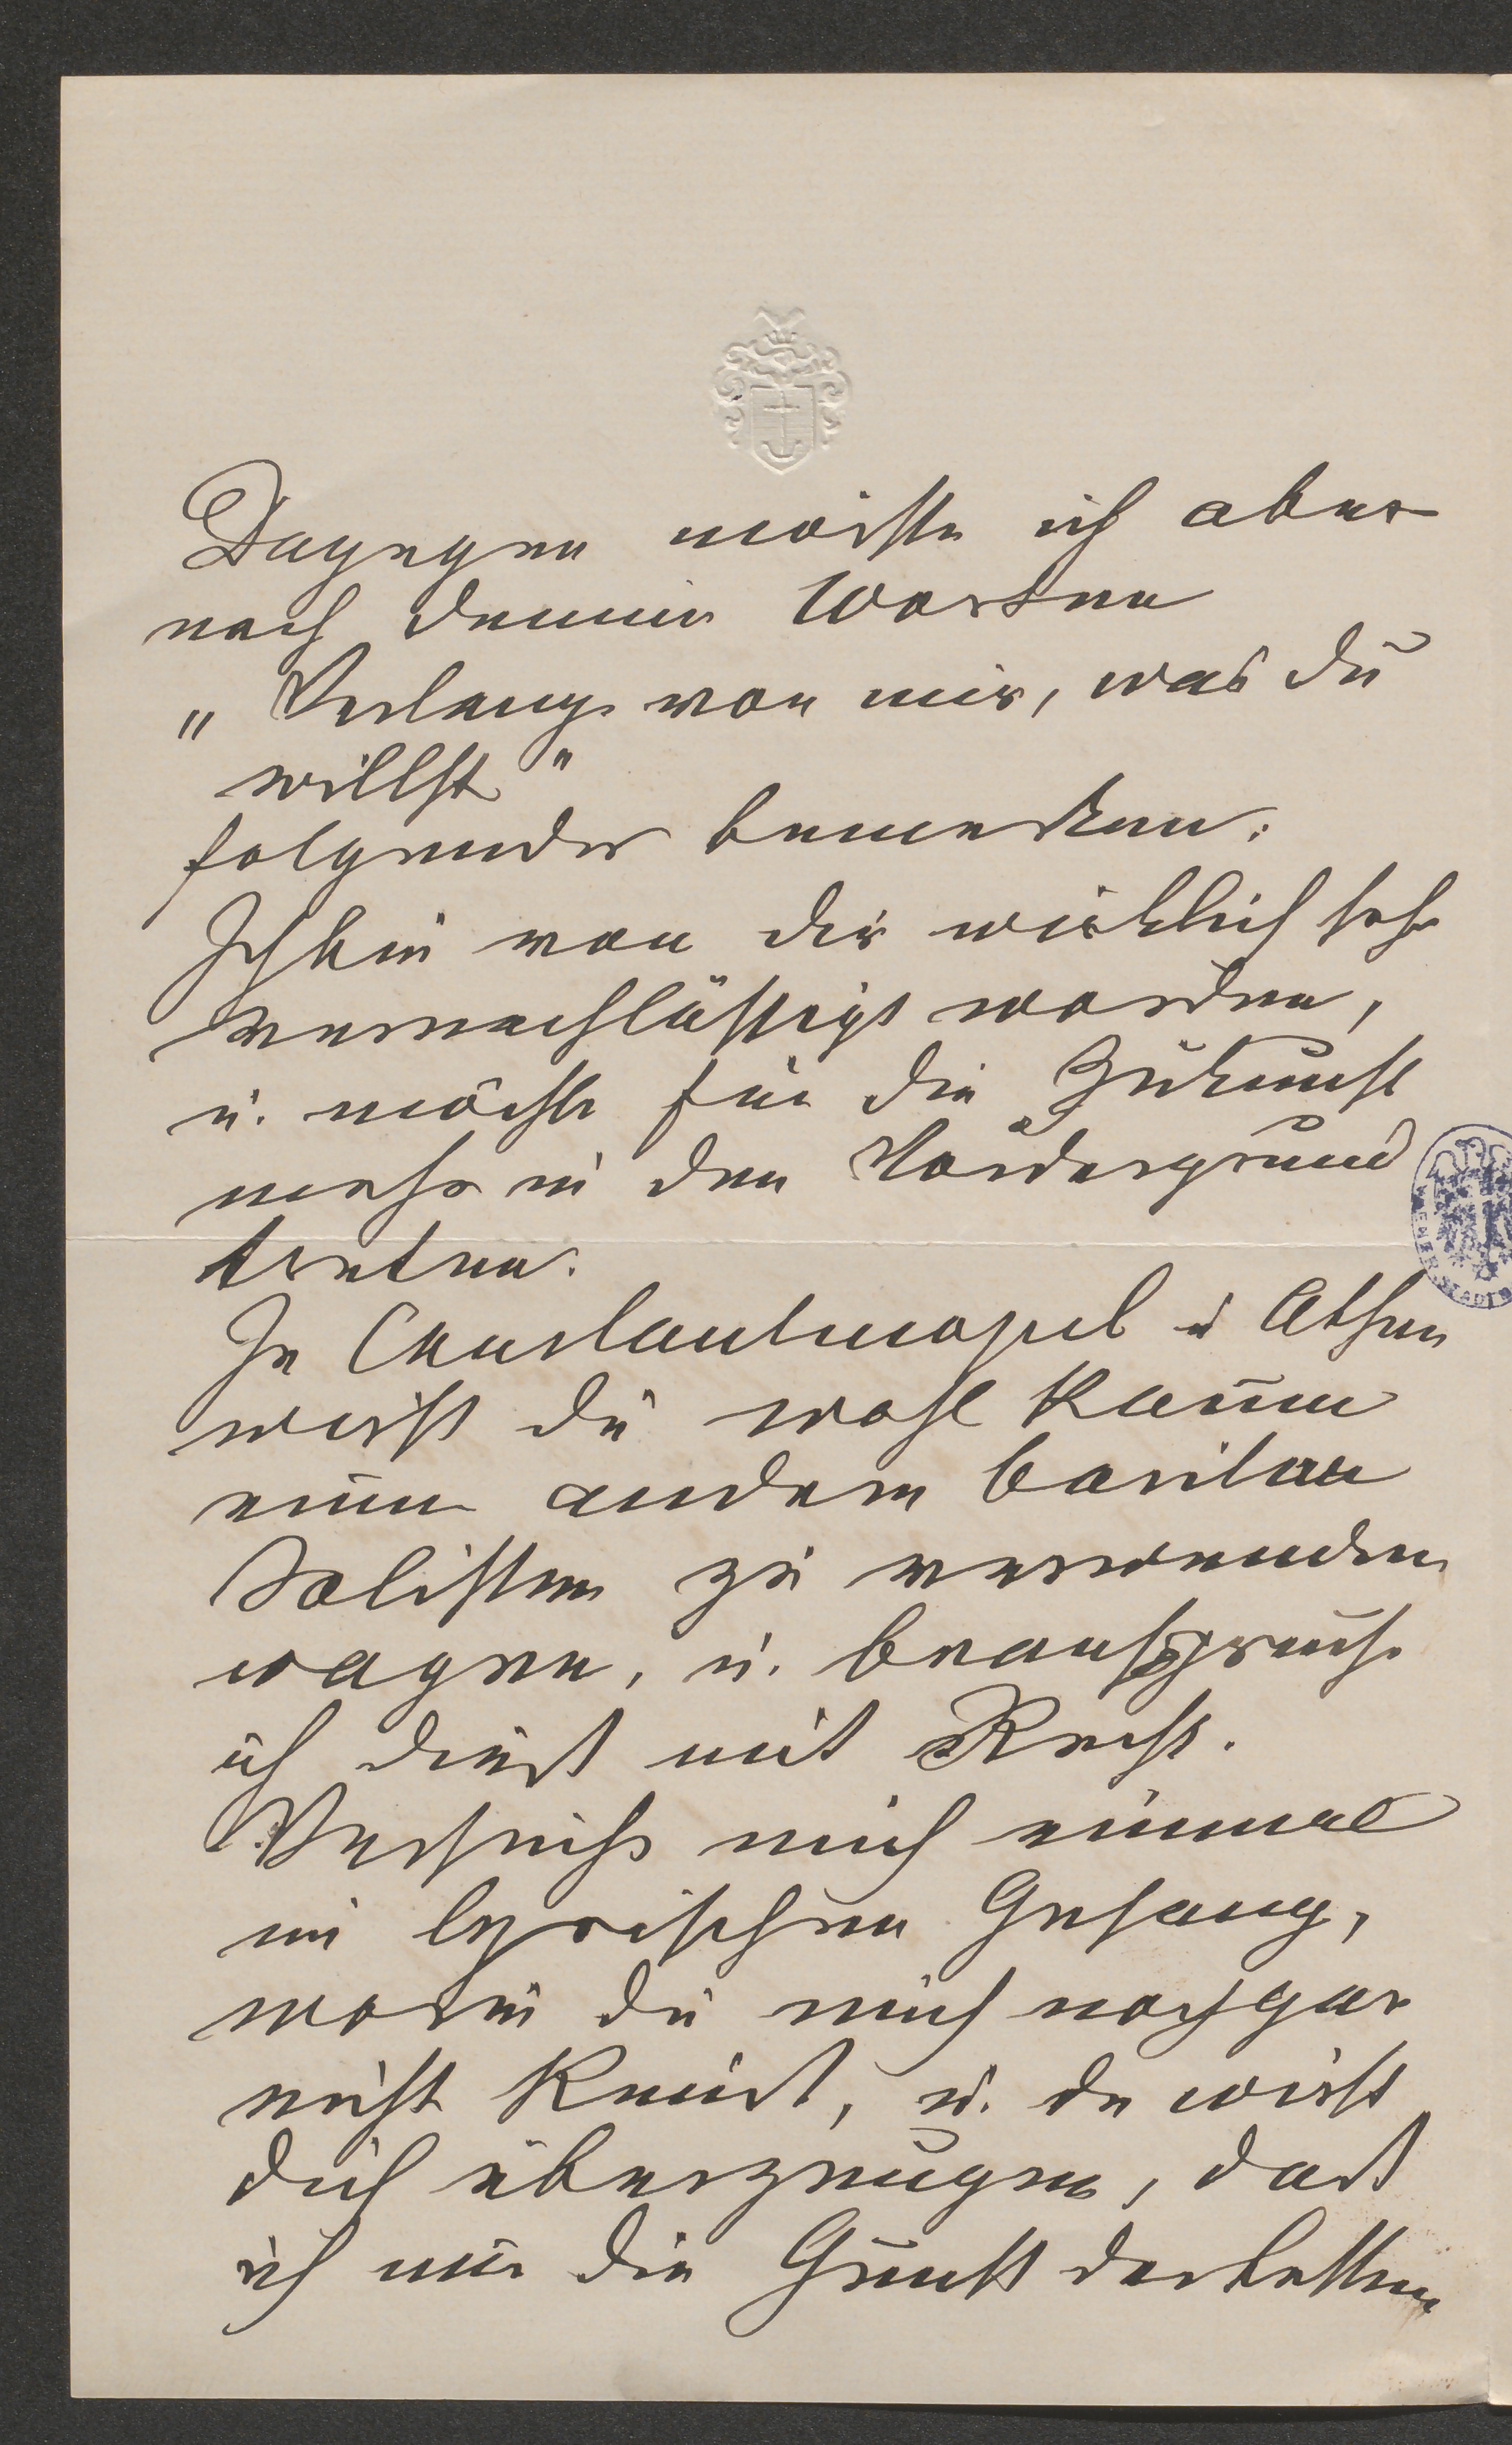 Dagegen möchte ich aber
nach deinen Worten
„Verlange von mir, was du
willst"
folgendes bemerken:
Ich bin von dir wirklich sehr
vernachlässigt worden,
u. möchte für die Zukunft
mehr in den Vordergrund
treten.
In Constantinopel u Athen
wirst du wohl kaum
einen andern Bariton
Solisten zu verwenden
wagen, u. beanspruche
ich dies mit Recht.
Versuchs mich einmal
im lyrischen Gesang,
worin du mich noch gar
nicht kennst, u. du wirst
dich überzeugen, dass
ich mir die Gunst der besten